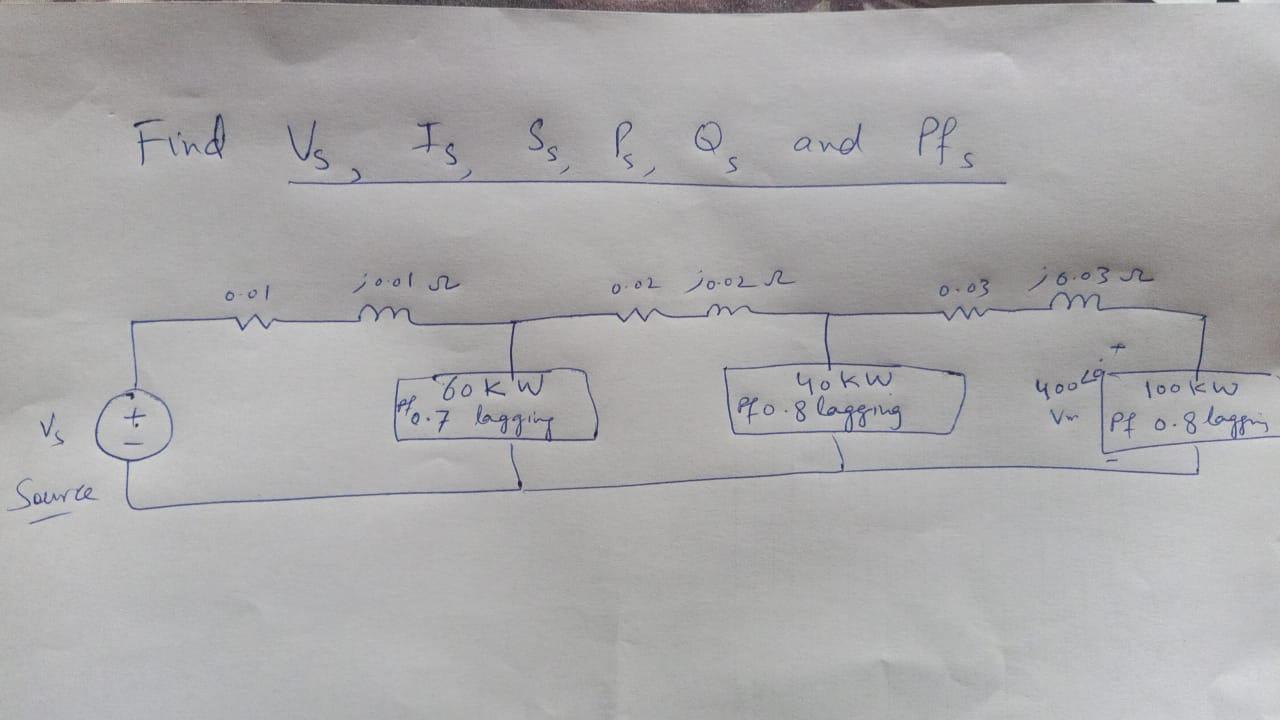 Find Vs, Is, Ss, Ps, Qs and Pfs
0.01 j0.01 Ω 0.02 j0.02 Ω 0.03 j0.03 Ω
Vs
+
-
Source
60 KW
Pf 0.7 lagging
40 KW
Pf 0.8 lagging
+
400∠0°
-
100 KW
Pf 0.8 laggin